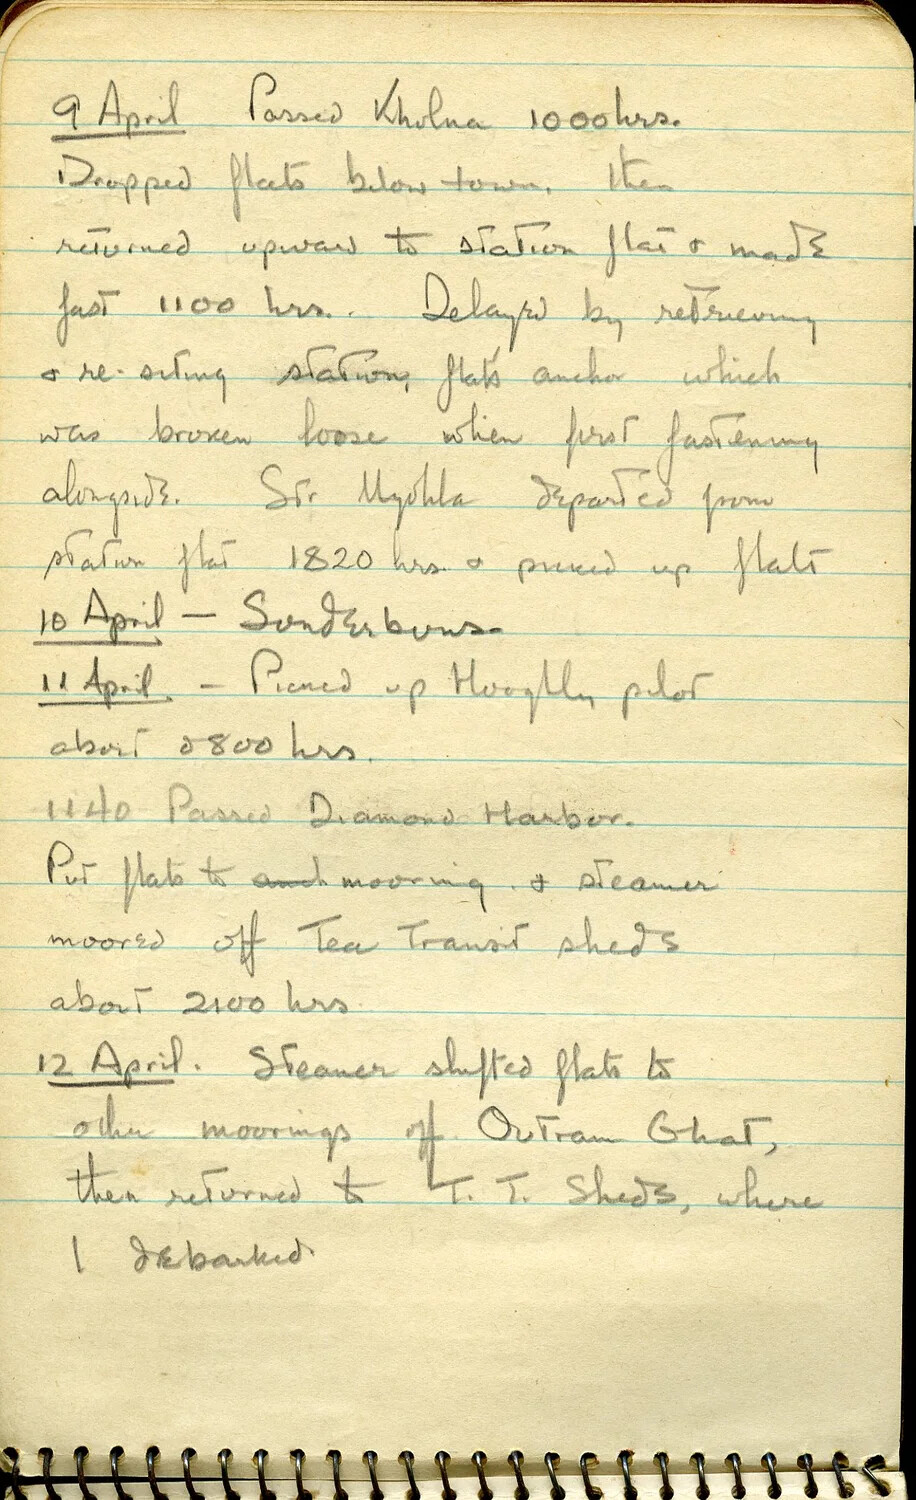 9 April Passed Kholna 1000 hrs.
Dropped flats below town, then
returned upward to station flat & made
fast 1100 hrs. Delayed by retrieving
& re-siting station flat's anchor which
was broken loose when first fastening
alongside. Str. departed from
station flat 1820 hrs. & picked up flats
10 April — Sunderbuns.
11 April. — Picked up Hooghly pilot
about 0800 hrs.
1140 Passed Diamond Harbor.
Put flats to anch mooring & steamer
moored off Tea Transit sheds
about 2100 hrs
12 April. Steamer shifted flats to
other moorings off Outram Ghat,
then returned to T. T. Sheds, where
I debarked